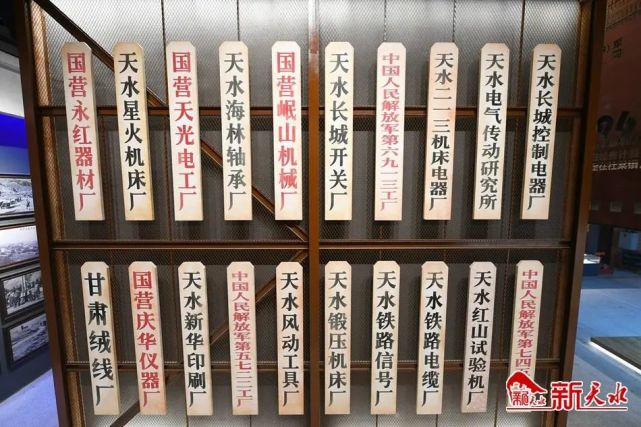 国营永红器材厂
天水星火机床厂
国营天光电工厂
天水海林轴承厂
国营岷山机械厂
天水长城开关厂
中国人民解放军第六九一三工厂
天水二一三机床电器厂
天水电气传动研究所
天水长城控制电器厂
甘肃绒线厂
国营庆华仪器厂
天水新华印刷厂
中国人民解放军第五七二三工厂
天水风动工具厂
天水锻压机床厂
天水铁路信号厂
天水铁路电缆厂
天水红山试验机厂
中国人民解放军第七四
新天水